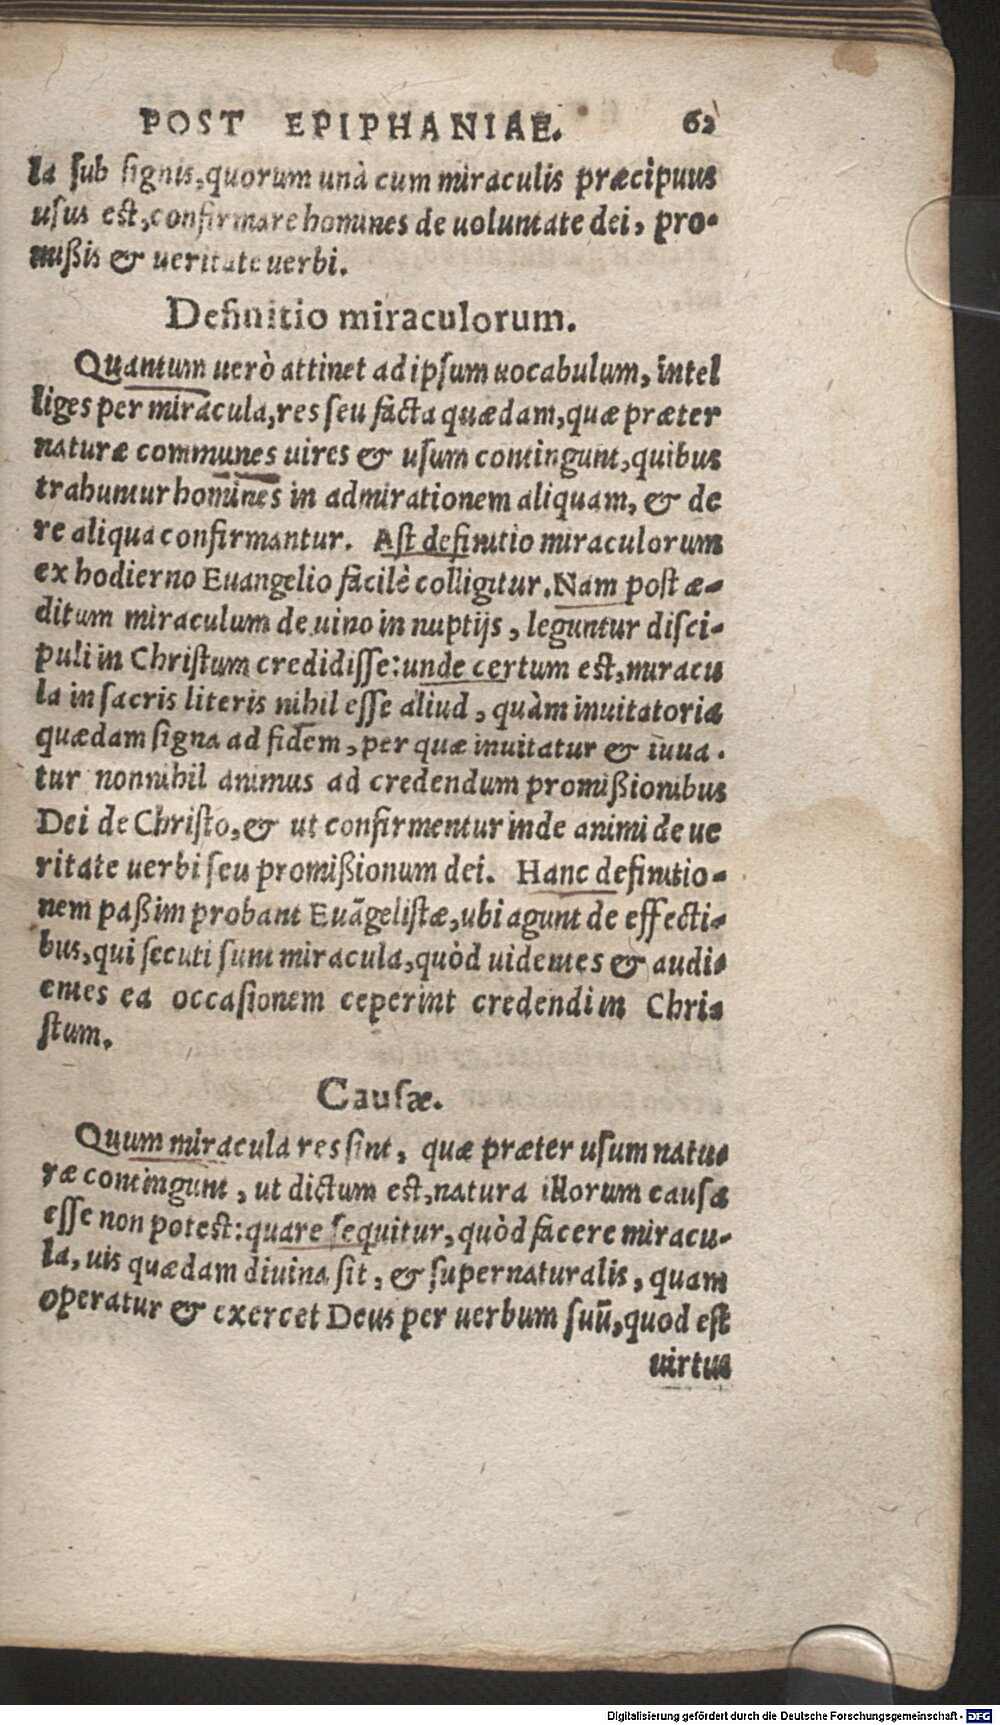 POST EPIPHANIAE. 62
la sub signis, quorum unà cum miraculis præcipuus
usus est, confirmare homines de uoluntate dei, pro-
mißis & ueritate uerbi.
Definitio miraculorum.
Quantum uerò attinet ad ipsum uocabulum, intel
liges per miracula, res seu facta quædam, quæ præter
naturæ communes uires & usum contingunt, quibus
trahuntur homines in admirationem aliquam, & de
re aliqua confirmantur. Ast definitio miraculorum
ex hodierno Euangelio facilè colligitur. Nam post æ-
ditum miraculum de uino in nuptijs, leguntur disci-
puli in Christum credidisse: unde certum est, miracu
la in sacris literis nihil esse aliud, quàm inuitatoria
quædam signa ad fidem, per quæ inuitatur & iuua-
tur nonnihil animus ad credendum promißionibus
Dei de Christo, & ut confirmentur inde animi de ue
ritate uerbi seu promißionum dei. Hanc definitio-
nem paßim probant Euãgelistæ, ubi agunt de effecti-
bus, qui secuti sunt miracula, quòd uidentes & audi-
entes ea occasionem ceperint credendi in Chri-
stum.
Causæ.
Quum miracula res sint, quæ præter usum natu-
ræ contingunt, ut dictum est, natura illorum causa
esse non potest: quare sequitur, quòd facere miracu-
la, uis quædam diuina sit, & supernaturalis, quam
operatur & exercet Deus per uerbum suũ, quod est
uirtus
Digitalisierung gefördert durch die Deutsche Forschungsgemeinschaft - DFG